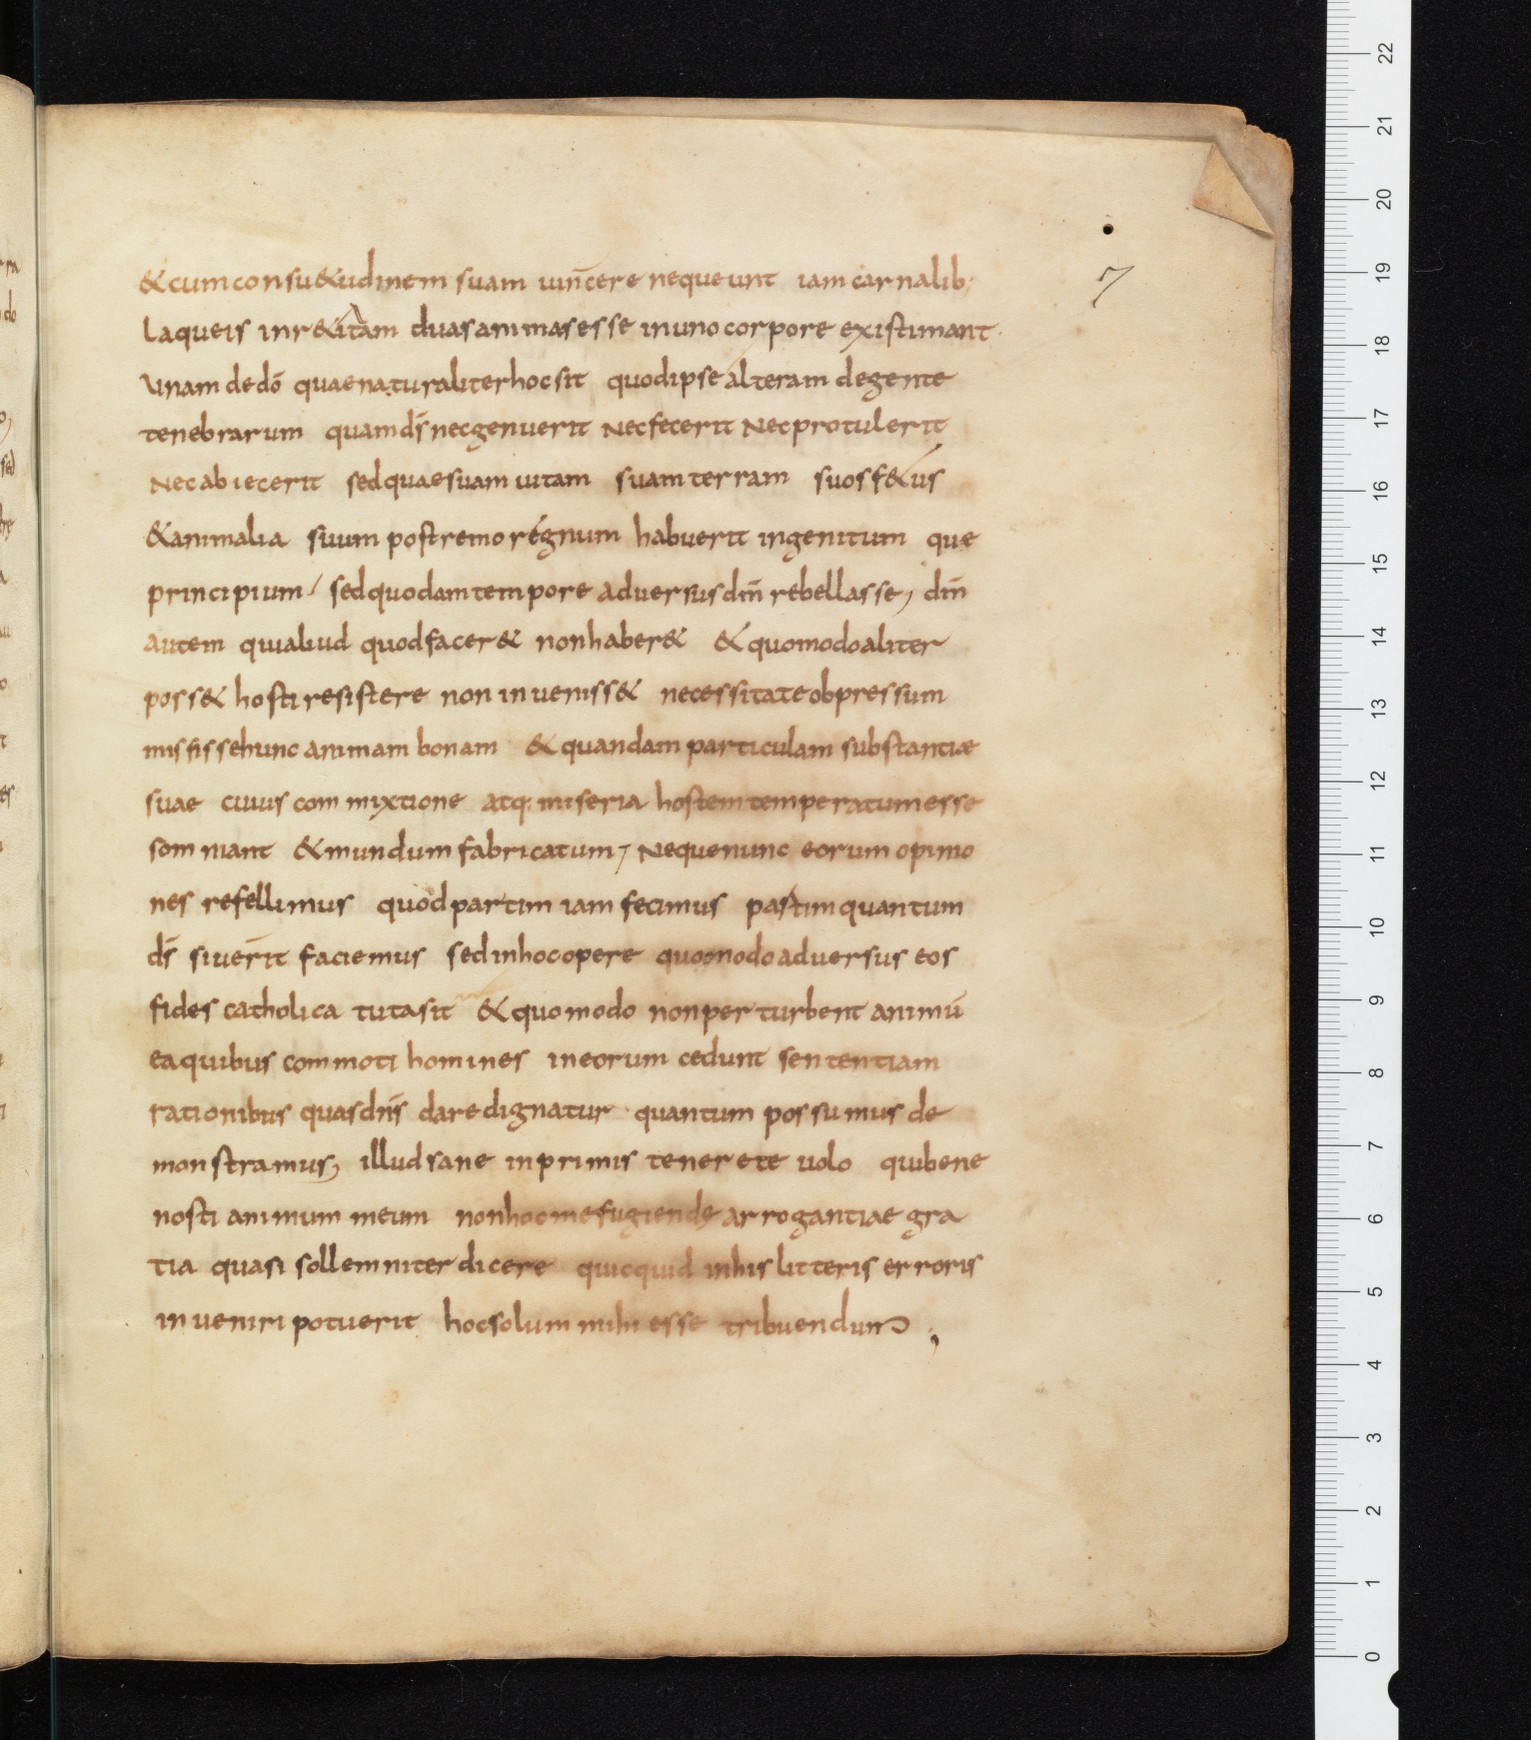 7
&cumconsu&udinem suam uincere nequeunt iam carnalib;
laqueis inr&itam duasanimasesse inunocorpore existimant.
unam dedō quaenaturaliterhocsit quodipse alteram degente
tenebrarum quamds̄ necgenuerit Necfecerit Necprotulerit
Necabiecerit sedquaesuam uitam suamterram suosf&us
&animalia suum postremo regnum habuerit ingenitum que
principium / sedquodamtempore aduersusdm̄ rebellasse, dm̄
autem quialiud quodfacer& nonhaber& &quomodoaliter
poss& hosti resistere non inueniss& necessitateobpressum
misissehunc animam bonam &quandam particulam substantiae
suae cuius commixtione atq; miseria hostemtemperatumesse
somniant &mundum fabricatum, Nequenunc eorum opinio
nes refellimus quodpartim iam fecimus partimquantum
ds̄ siuerit faciemus sedinhocopere quomodoaduersus eos
fides catholica tutasit &quomodo nonperturbent animū
eaquibus commoti homines ineorum cedunt sententiam
rationibus quasdn̄s daredignatur quantum possumus de
monstramus, illudsane inprimis tenerete uolo quibene
nosti animum meum nonhocmefugiendę arrogantiae gra
tia quasi sollemniter dicere quicquid inhis litteris erroris
inueniri potuerit hocsolum mihi esse tribuendum ;
22
21
20
19
18
17
16
15
14
13
12
11
10
9
8
7
6
5
4
3
2
1
0